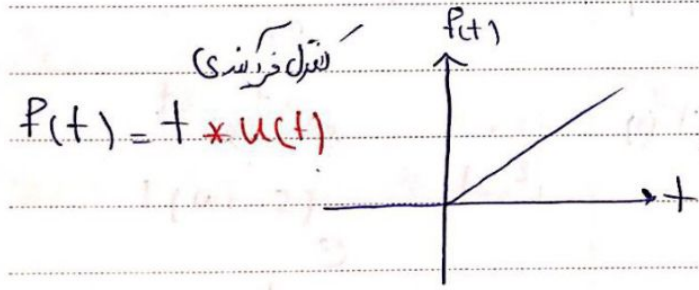 f(t)
کنترل فرآیندی
f(t) = t * u(t)
t